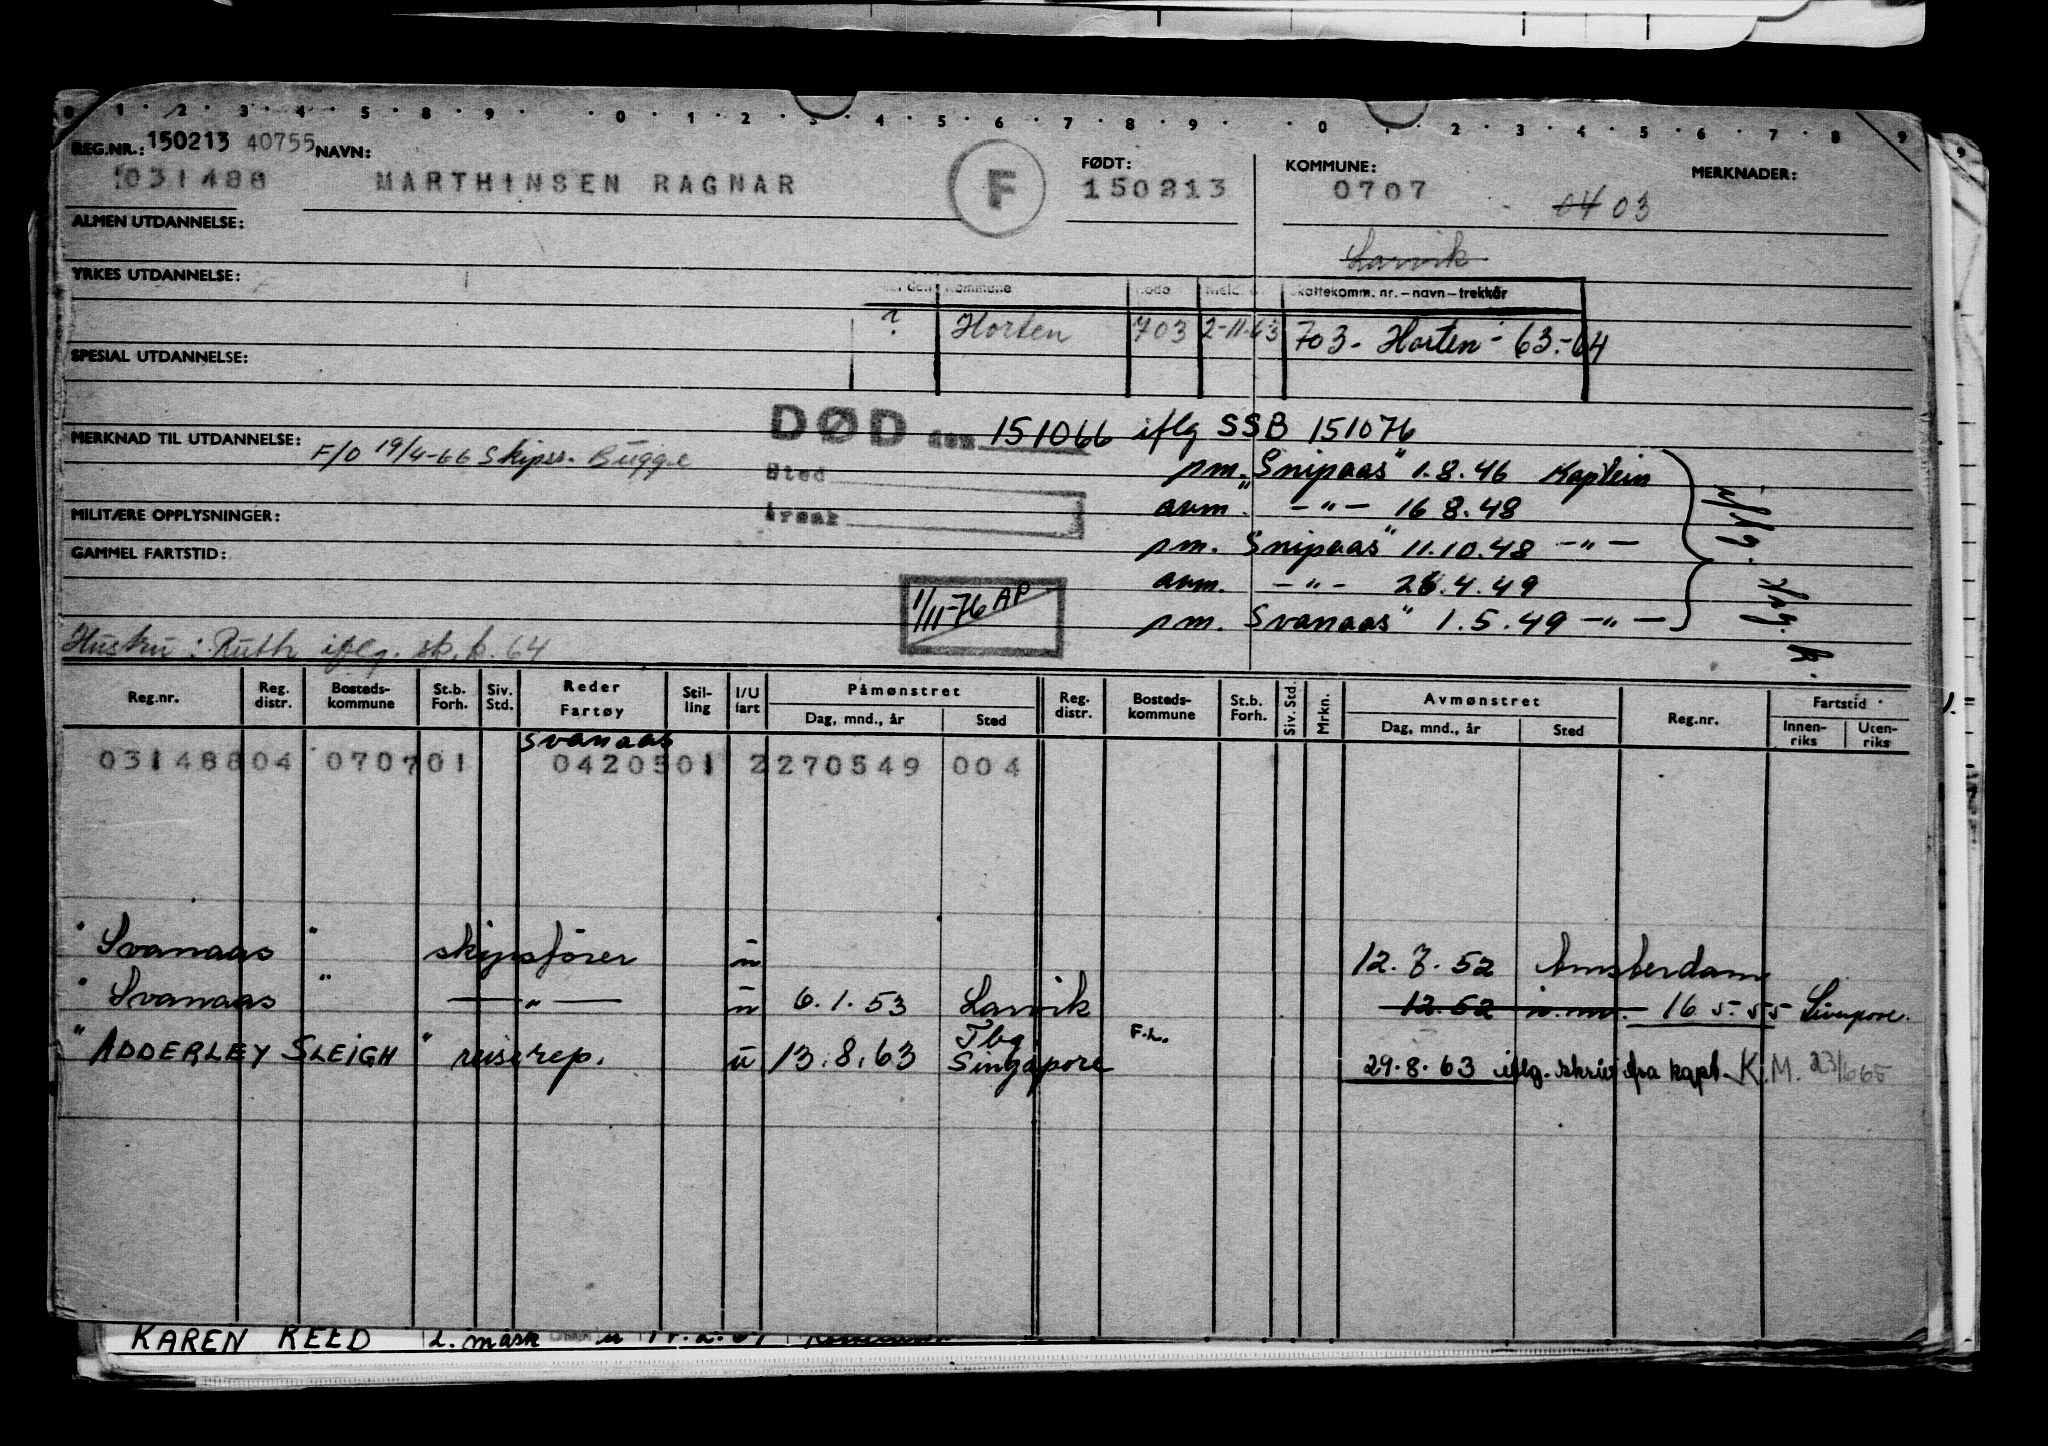 0 · 1 · 2 · 3 · 4 · 5 · 8 · 9 · · 0 · 1 · 2 · 3 · 4 · 5 · 6 · 7 · 8 · 9 · · 0 · 1 · 2 · 3 · 4 · 5 · 6 · 7 · 8 · 9
REG.NR.: 150213 40755 NAVN: FØDT: KOMMUNE: MERKNADER:
031488 MARTHINSEN RAGNAR F 150213 0707 04 03
ALMEN UTDANNELSE:
Larvik
YRKES UTDANNELSE:
Kommune Skattekomm. nr. – navn – trekkår
? Horten 703 2-11-63 703 - Horten - 63.-64
SPESIAL UTDANNELSE:
DØD den 151066 iflg SSB 151076
MERKNAD TIL UTDANNELSE: F/O 19/4-66 Skipss. Bugge
Sted pm. "Snipaas" 1.8.46 Kaptein
Årsak avm. - " - 16.8.48
MILITÆRE OPPLYSNINGER:
pm. Snipaas" 11.10.48 - " -
GAMMEL FARTSTID:
avm. - " - 26.4.49
1/11-76 AP
pm. Svanaas" 1.5.49 - " -
Hustru: Ruth iflg. sk.k. 64
Reg.nr. Reg. distr. Bosteds-kommune St.b. Forh. Siv. Std. Reder Fartøy Stil-ling I/U fart Påmønstret Dag, mnd., år Sted Reg. distr. Bosteds-kommune St.b. Forh. Siv. Std. Mrkn. Avmønstret Dag, mnd., år Sted Reg.nr. Fartstid Innen-riks Uten-riks
Svanaas
031488 04 0707 01 0420501 2 270549 004
" Svanaas " skipsfører u 12.7.52 Amsterdam
" Svanaas " — " — u 6.1.53 Larvik 12.52 16 5.55 Liverpore.
Tbg.
" ADDERLEY SLEIGH " reiserep. u 13.8.63 Singapore F.h. 29.8.63 iflg. skriv fra kapt. K.M. 23/665
KAREN REED 2. mask u